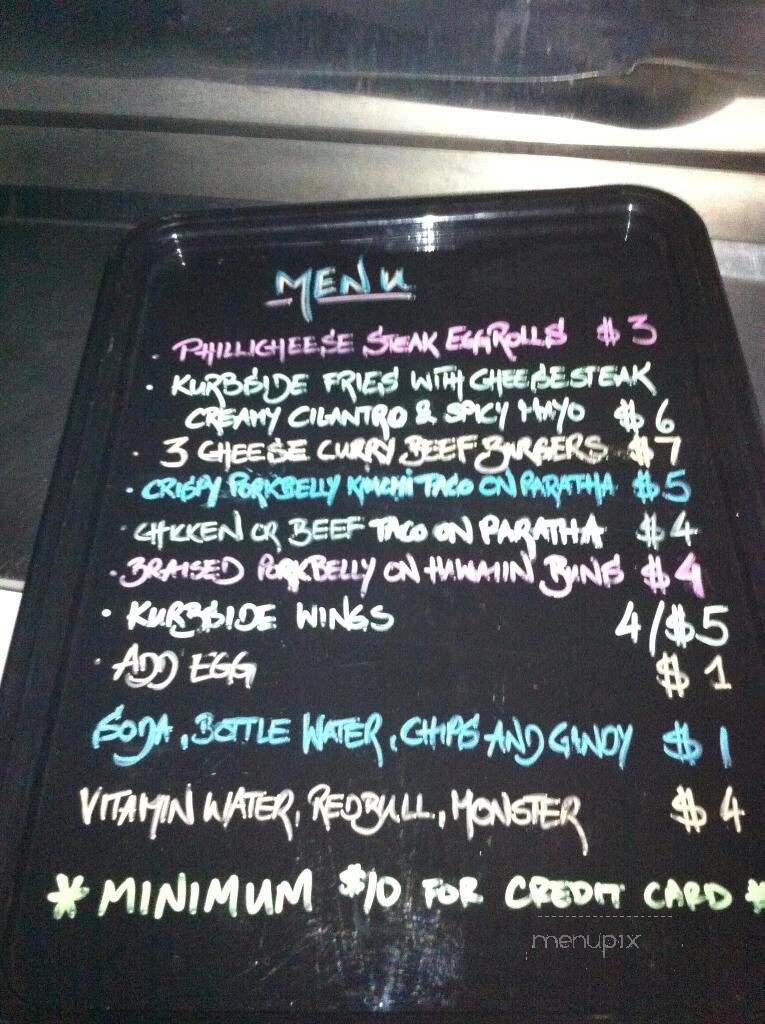 MENU
• PHILLICHEESE STEAK EGGROLLS $3
• KURBSIDE FRIES WITH CHEESESTEAK
CREAMY CILANTRO & SPICY MAYO $6
• 3 CHEESE CURRY BEEF BURGERS $7
• CRISPY PORKBELLY KIMCHI TACO ON PARATHA $5
CHICKEN OR BEEF TACO ON PARATHA $4
• BRAISED PORKBELLY ON HAWAIIN BUNS $4
• KURBSIDE WINGS 4/$5
• ADD EGG $1
SODA, BOTTLE WATER, CHIPS AND CANDY $1
VITAMIN WATER, REDBULL, MONSTER $4
* MINIMUM $10 FOR CREDIT CARD *
menupix